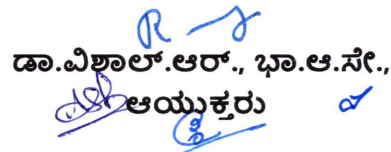 ಡಾ.ವಿಶಾಲ್.ಆರ್., ಭಾ.ಆ.ಸೇ.,
ಆಯುಕ್ತರು